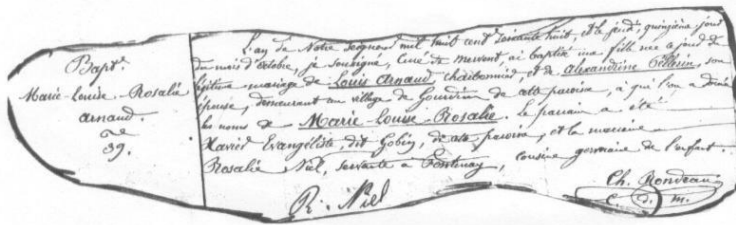 Bapt.
Marie-Louise-Rosalie
arnaud.
39.
L'an de Notre Seigneur mil huit cent soixante huit, et le jeudi, quinzième jour
du mois d'octobre, je soussigné, Curé de, ai baptisé une fille née ce jour de
légitime mariage de Louis Arnaud, charbonnier, et de Alexandrine, son
épouse, demeurant au village de de cette paroisse, à qui l'on a donné
les noms de Marie-Louise-Rosalie. Le parrain a été
Xavier Evangéliste, dit Gobin, de cette paroisse, et la marraine
Rosalie Niel, servante à Fontenay, cousine germaine de l'enfant.
R. Niel
Ch. Rondeau
c. d. m.